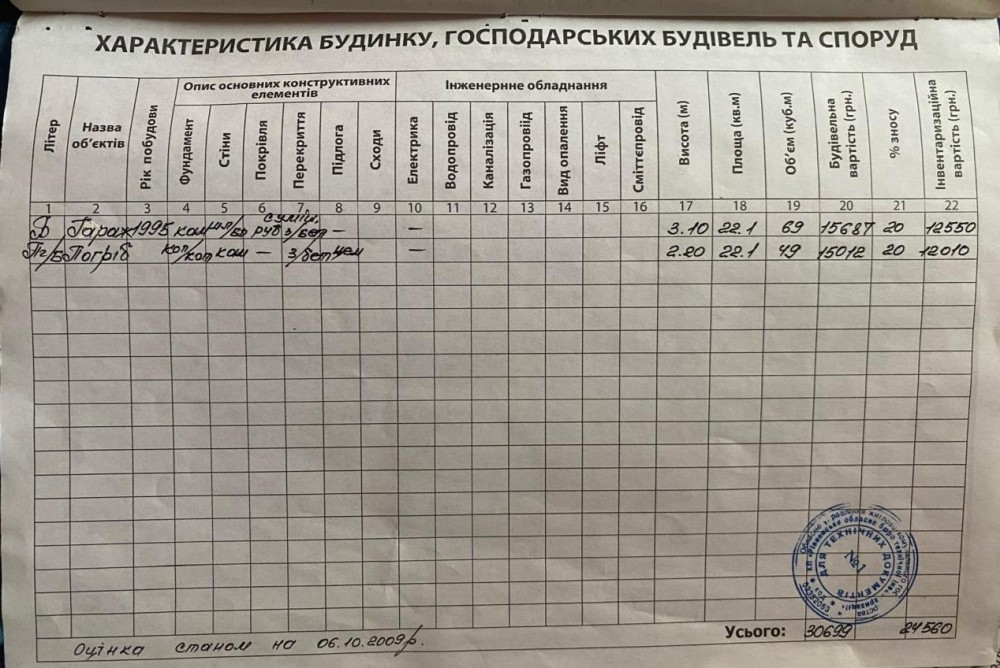 ХАРАКТЕРИСТИКА БУДИНКУ, ГОСПОДАРСЬКИХ БУДІВЕЛЬ ТА СПОРУД
Літер Назва об'єктів Рік побудови Опис основних конструктивних елементів Інженернне обладнання Висота (м) Площа (кв.м) Об'єм (куб.м) Будівельна вартість (грн.) % зносу Інвентаризаційна вартість (грн.)
Фундамент Стіни Покрівля Перекриття Підлога Сходи Електрика Водопровід Каналізація Газопровіід Вид опалення Ліфт Сміттєпровід
1 2 3 4 5 6 7 8 9 10 11 12 13 14 15 16 17 18 19 20 21 22
Гараж 1995 кам руб з/бет — — 3.10 22.1 69 15687 20 12550
Пг/Б Погріб кам — з/бет цем — 2.20 22.1 49 15012 20 12010
ДЛЯ ТЕХНІЧНИХ ДОКУМЕНТІВ
№1
Усього: 30699 24560
Оцінка станом на 06.10.2009р.